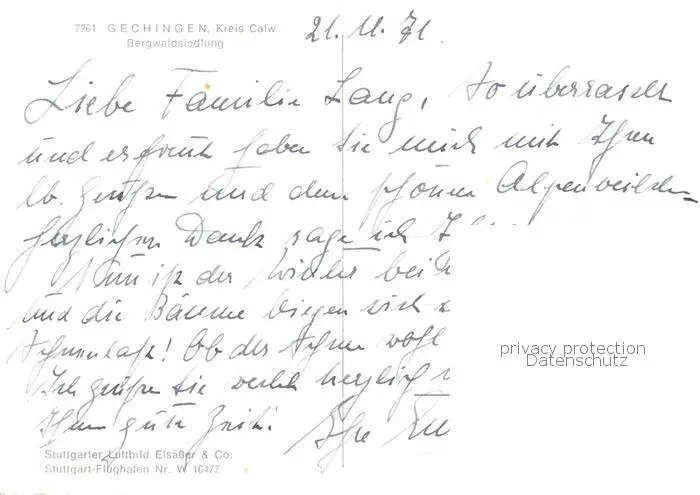 7261 GECHINGEN, Kreis Calw
Bergwaldsiedlung
21.11.71.
Liebe Familie Lang, so überrascht
und erfreut haben Sie mich mit Ihren
lb. Grüßen und dem schönen Alpenveilchen
herzlichen Dank sage ich
Nun ist der Winter bei
und die Bäume biegen sich
Schneelast! Ob der Schnee wohl
Ich grüße Sie recht herzlich
Ihnen gute Zeit! Ihre
privacy protection
Datenschutz
Stuttgarter Luftbild Elsäßer & Co.
Stuttgart-Flughafen Nr. W 16477